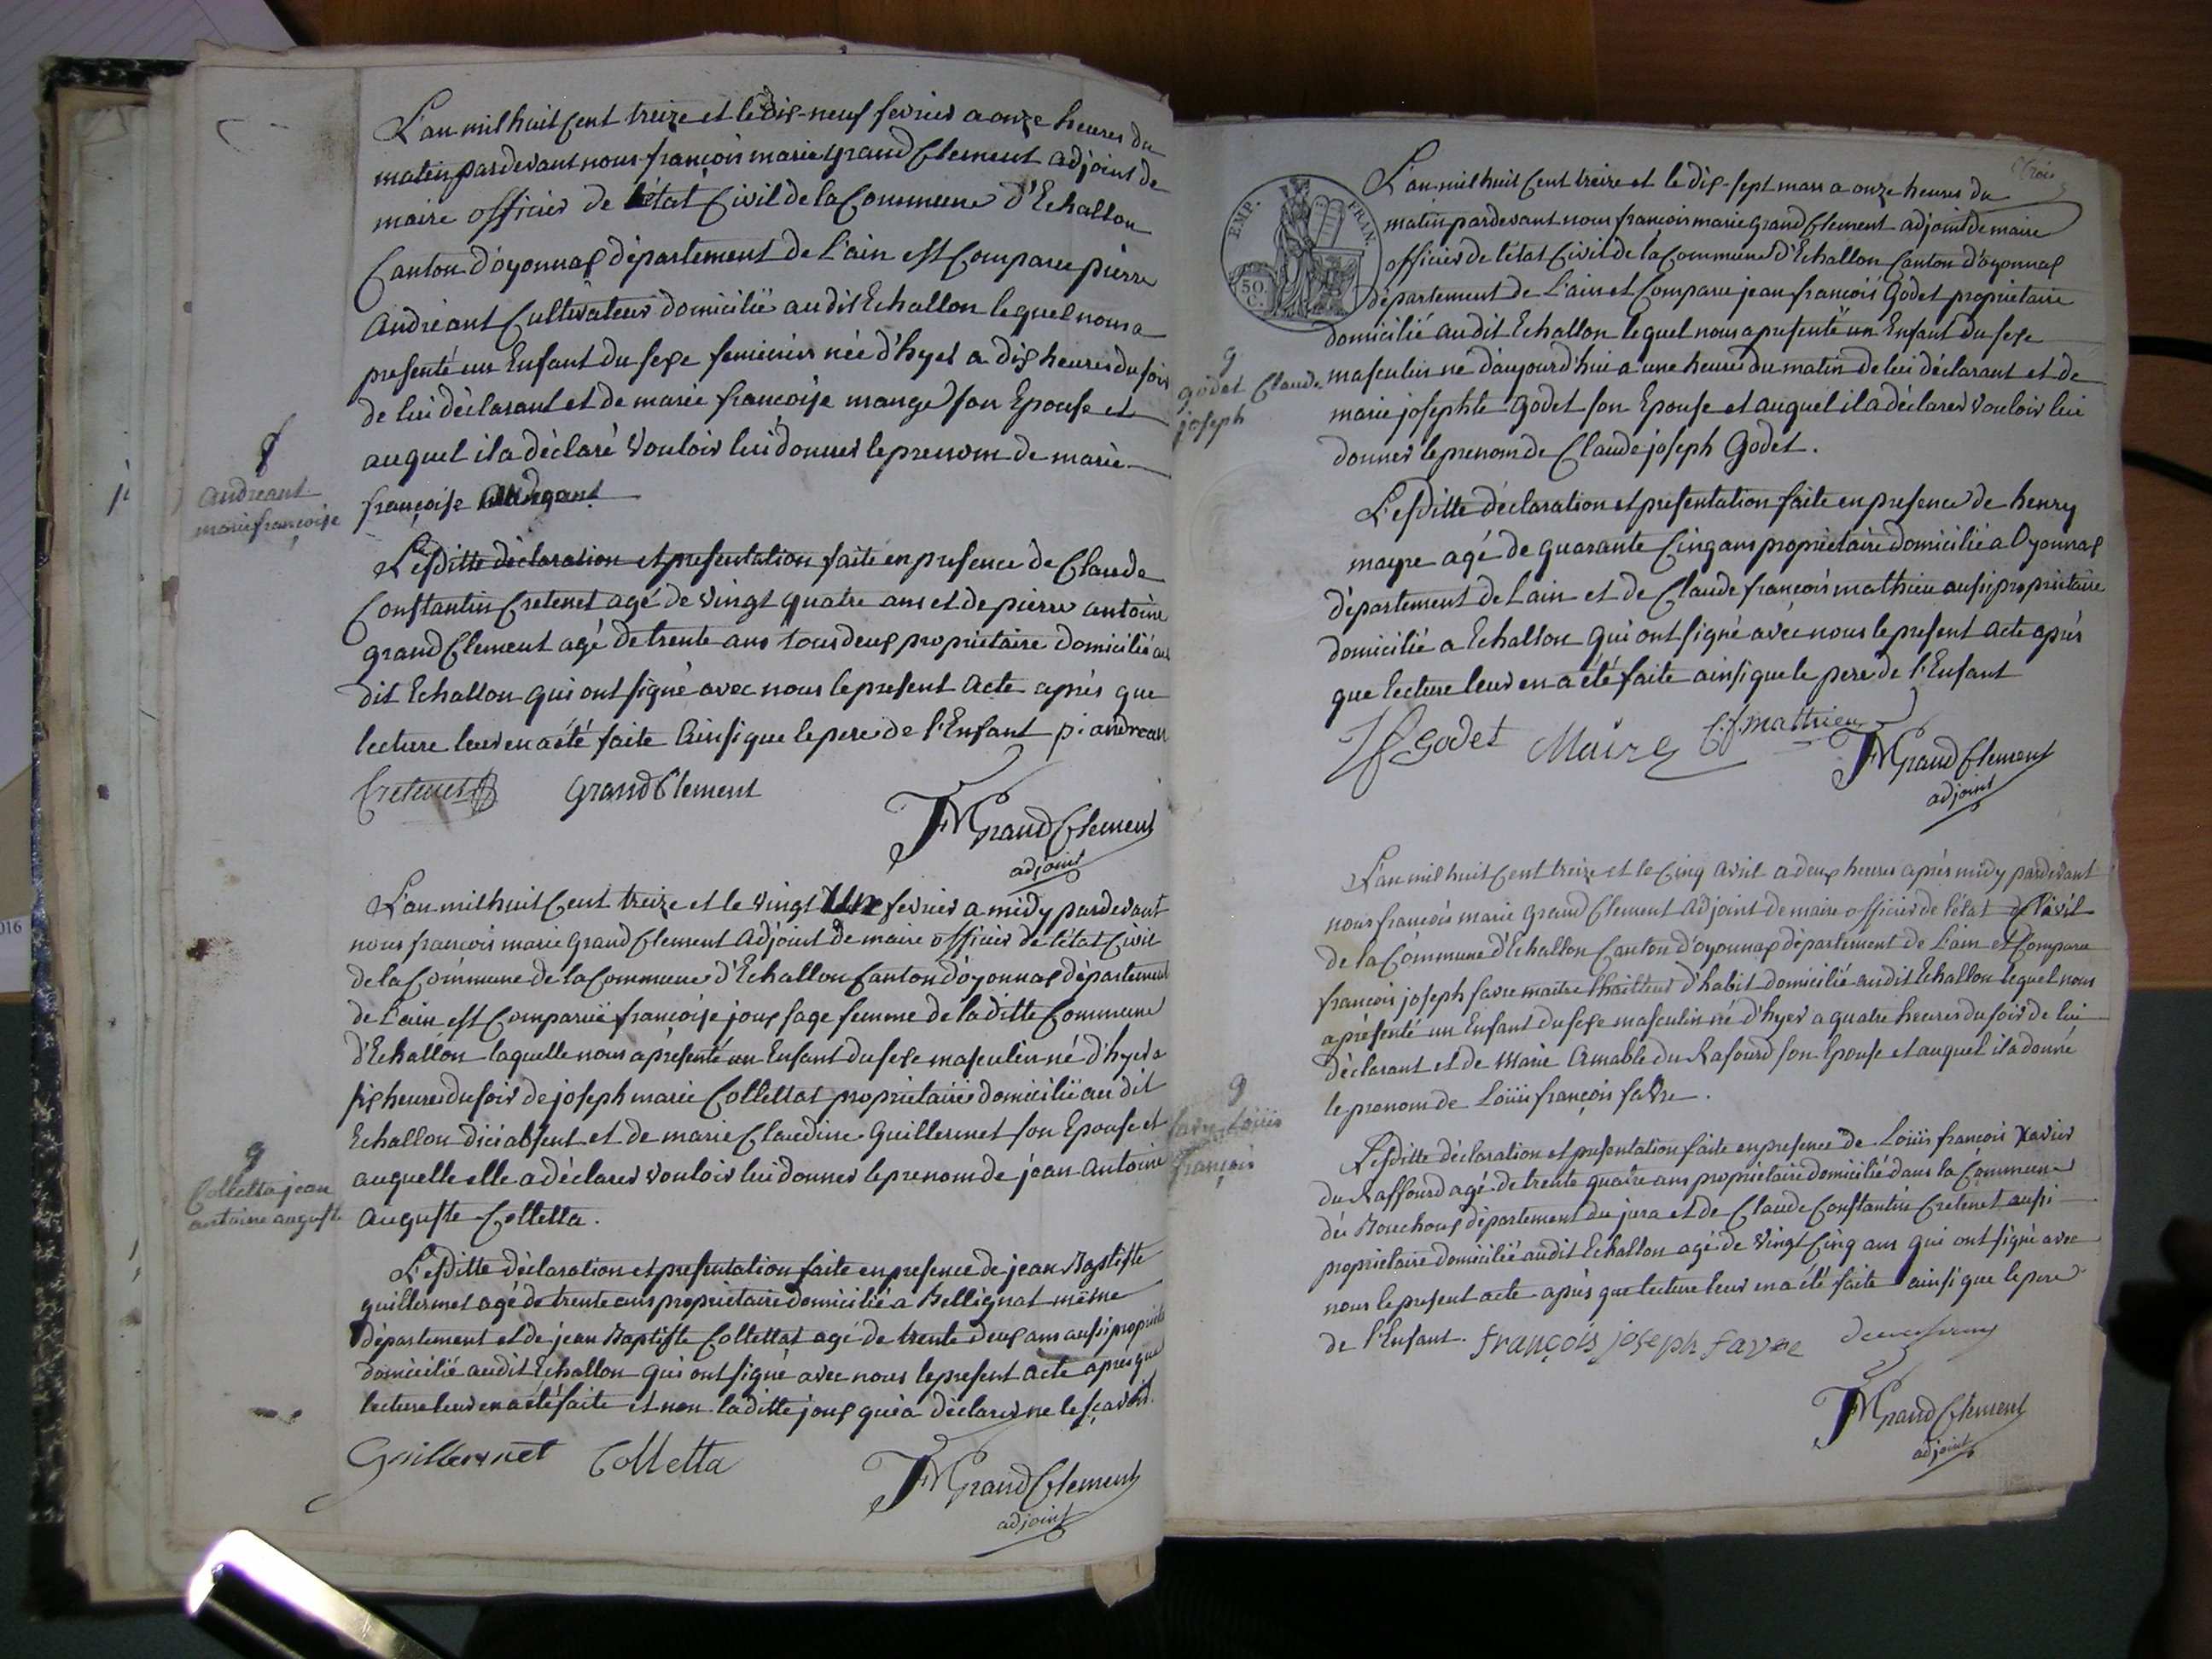 L'an mil huit Cent treize et le dix-neuf fevrier a onze heures du
matin pardevant nous françois marie grand Clement adjoint de
maire officier de létat Civil de la Commune d'Echallon
Canton d'oyonnax département de L'ain est Comparu pierre
Andréant Cultivateur domicilié audit Echallon lequel nous a
presenté un Enfant du sexe feminin née d'hyer a dix heures du soir
de lui déclarant et de marie francoise mange son Epouse et
auquel il a déclaré vouloir lui donner le prenom de marie
françoise
8
andreant
marie françoise
Lesditte déclaration et presentation faite en presence de Claude
Constantin Cretenet agé de vingt quatre ans et de pierre antoine
grand Clement agé de trente ans tous deux propriétaire domicilié au
dit Echallon qui ont signé avec nous le present acte après que
lecture leur en a été faite Ainsi que le pere de l'Enfant p. andrean
Cretenet grand Clement
FM Grand Clement
adjoint
L'an mil huit Cent treize et le vingt Un fevrier a midy pardevant
nous francois marie grand Clement adjoint de maire officier de létat Civil
de la Commune de la Commune d'Echallon Canton d'oyonnax département
de L'ain est Comparuë françoise joux sage femme de laditte Commune
d'Echallon laquelle nous a présenté un Enfant du sexe masculin né d'hyer a
six heures du soir de joseph marie Collettat propriétaire domicilié audit
Echallon dici absent et de marie Claudine Guillermet son Epouse et
auquelle elle a déclarer vouloir lui donner le prenom de jean antoine
auguste Colletta.
9
Colletta jean
antoine auguste
Lesditte déclaration et presentation faite en presence de jean Baptiste
guillermet agé de trente ans propriétaire domicilié a Bellignat même
département et de jean Baptiste Collettat agé de trente deux ans aussi propriét
domicilié audit Echallon qui ont signé avec nous le present acte apres que
lecture leur en a été faite et non laditte joux qui a déclarer ne le sçavoir.
Guillermet Colletta
FM Grand Clement
adjoint
trois
EMP. FRAN.
50.
C.
L'an mil huit Cent treize et le dix-sept mars a onze heures du
matin pardevant nous françois marie grand Clement adjoint de maire
officier de létat Civil de la Commune d'Echallon Canton d'oyonnax
département de L'ain est Comparu jean françois Godet propriétaire
domicilié audit Echallon lequel nous a presenté un Enfant du sexe
masculin né d'aujourd'hui a une heure du matin de lui déclarant et de
marie josephte Godet son Epouse et auquel il a déclarer vouloir lui
donner le prenom de Claude joseph Godet.
9
godet Claude
joseph
Lesditte déclaration et presentation faite en presence de henry
mayre agé de quarante Cinq ans propriétaire domicilié a Oyonnax
département de Lain et de Claude françois mathieu aussi propriétaire
domicilié a Echallon qui ont signé avec nous le present acte après
que lecture leur en a été faite ainsi que le pere de l'Enfant
Jf Godet Maire C.f. mathieu
FM Grand Clement
adjoint
L'an mil huit Cent treize et le Cinq avril a deux heures après midy pardevant
nous francois marie grand Clement adjoint de maire officier de létat Civil
de la Commune d'Echallon Canton d'oyonnax département de L'ain est Comparu
francois joseph favre maitre thailleur d'habit domicilié audit Echallon lequel nous
a présenté un Enfant du sexe masculin né d'hyer a quatre heures du soir de lui
déclarant et de marie Amable du Rafourd son Epouse et auquel il a donné
le prenom de Loüis françois favre.
9
favre Loüis
françois
Lesditte déclaration et presentation faite en presence de Loüis francois Xavier
du Raffourd agé de trente quatre ans propriétaire domicilié dans la Commune
dés Bouchoux département du jura et de Claude Constantin Cretenet aussi
propriétaire domicilié audit Echallon agé de vingt Cinq ans qui ont signé avec
nous le present acte après que lecture leur en a été faite ainsi que le pere
de l'Enfant. françois joseph favre
FM Grand Clement
adjoint